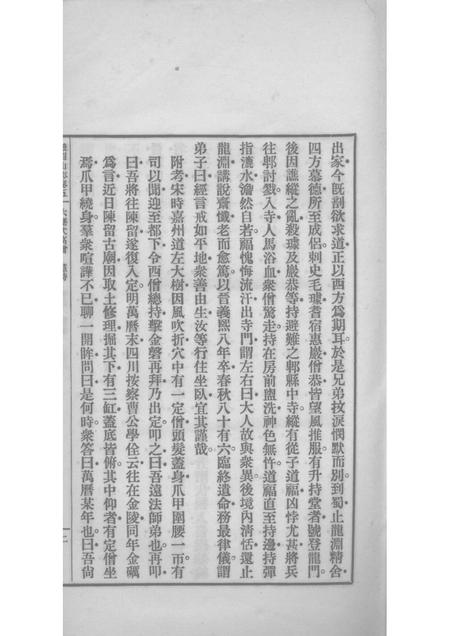 出家今旣割欲求道正以西方爲期耳於是兄弟抆淚憫默而別到蜀止龍淵精舍
四方慕德所至成侶刺史毛璩耆宿惠巖僧恭皆望風推服有升持堂者號登龍門
後因譙縱之亂殺璩及巖恭等持避難之郫縣中寺縱有從子道福凶悖尤甚將兵
往郫討戮入寺人馬浴血衆僧驚走持在房前盥洗神色無忤道福直至持邊持彈
指漉水澹然自若福愧悔流汗出寺門謂左右曰大人故與衆異後境內淸恬還止
龍淵講說齋懺老而愈篤以晉義熙八年卒春秋八十有六臨終遺命務最律儀謂
弟子曰經言戒如平地衆善由生汝等行住坐臥宜其謹哉
附考宋時嘉州道左大樹因風吹折穴中有一定僧頭髮蓋身爪甲圍腰一帀有
司以聞迎至都下令西僧總持擊金磬再拜乃出定叩之曰吾遠法師弟也再叩
曰吾將往陳留遂復入定明萬曆末四川按察曹公學佺云往在金陵同年金礪
爲言近日陳留古廟因取土修理掘其下有三缸蓋底皆俯其中仰者有定僧坐
焉爪甲繞身羣衆喧譁不已聊一開眸問曰是何時衆答曰萬曆某年也曰吾尙